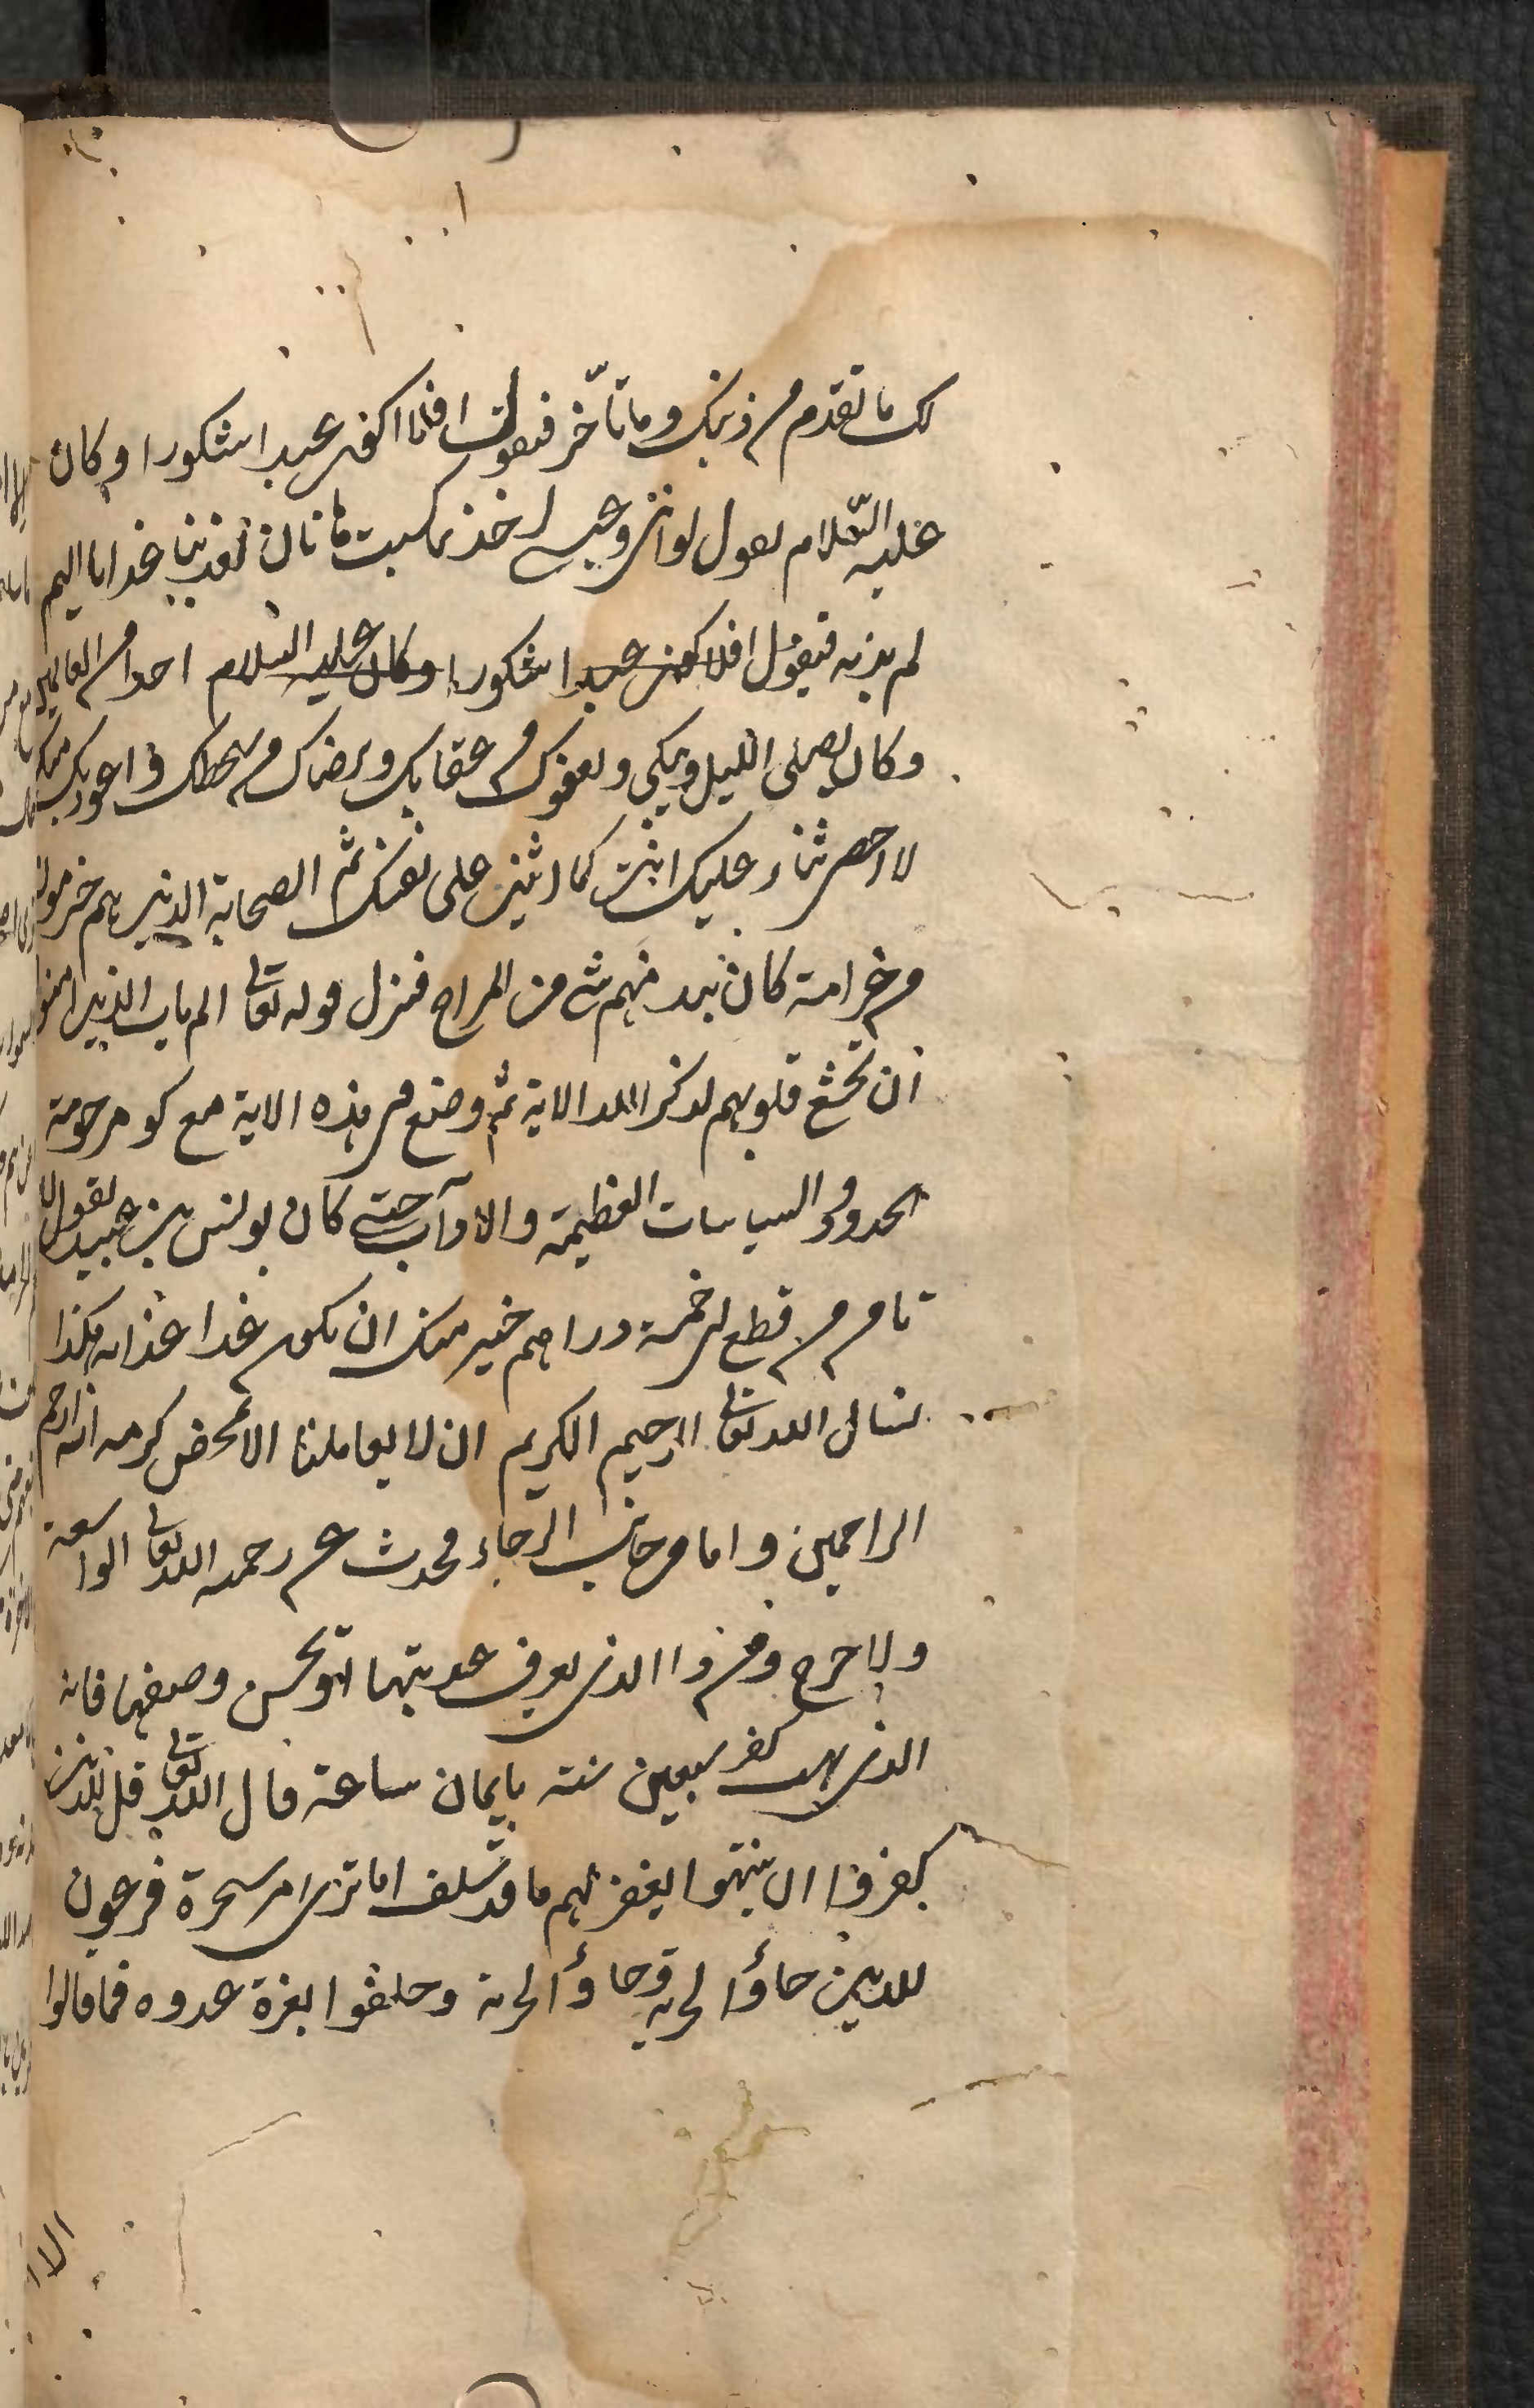 لك ما تقدم من ذنبك وما تأخّر فيقول افلا اكون عبدا شكورا وكان
عليه السّلام يقول لو انى وعيسى اخذنا بما كسبت هاتان لعذبنا عذابا اليم
لم يعذبه فيقول افلا اكون عبدا شكورا وكان عليه السلام احدا من العالمين
وكان يصلى الليل ويبكى وبعفوك من عقابك وبرضاك من سخطك واعوذ بك منك
لا احصى ثناء عليك انت كما اثنيت على نفسك ثم الصحابة الذين هم خير
من خير امة كان نبدر منهم شئ من المزاح فنزل قوله تعالى الم يان للذين امنوا
ان تخشع قلوبهم لذكر الله الاية ثم وضع فى هذه الاية مع كو مرحومة
الحدود والسياسات العظيمة والاداب حتى كان يونس بن عبيد يقول لا
تامن من قطع فى خمسة دراهم خير منك ان يكون غدا عذابه هكذا
نسال الله تعالى الرحيم الكريم ان لا يعاملنا الا بمحض كرمه انه ارحم
الراحمين واما من جانب الرجاء فحدث عن رحمة الله تعالى الواسعة
ولا حرج ومن ذا الذى يعرف غايتها او يحسن وصفها فانه
الذى يهب كفر سبعين سنة بايمان ساعة قال الله تعالى قل للذين
كفروا ان ينتهوا يغفر لهم ما قد سلف اما ترى امر سحرة فرعون
للذين جاؤا لحربه وجاؤا لحربه وحلفوا بعزة عدوه فما قالوا
الا